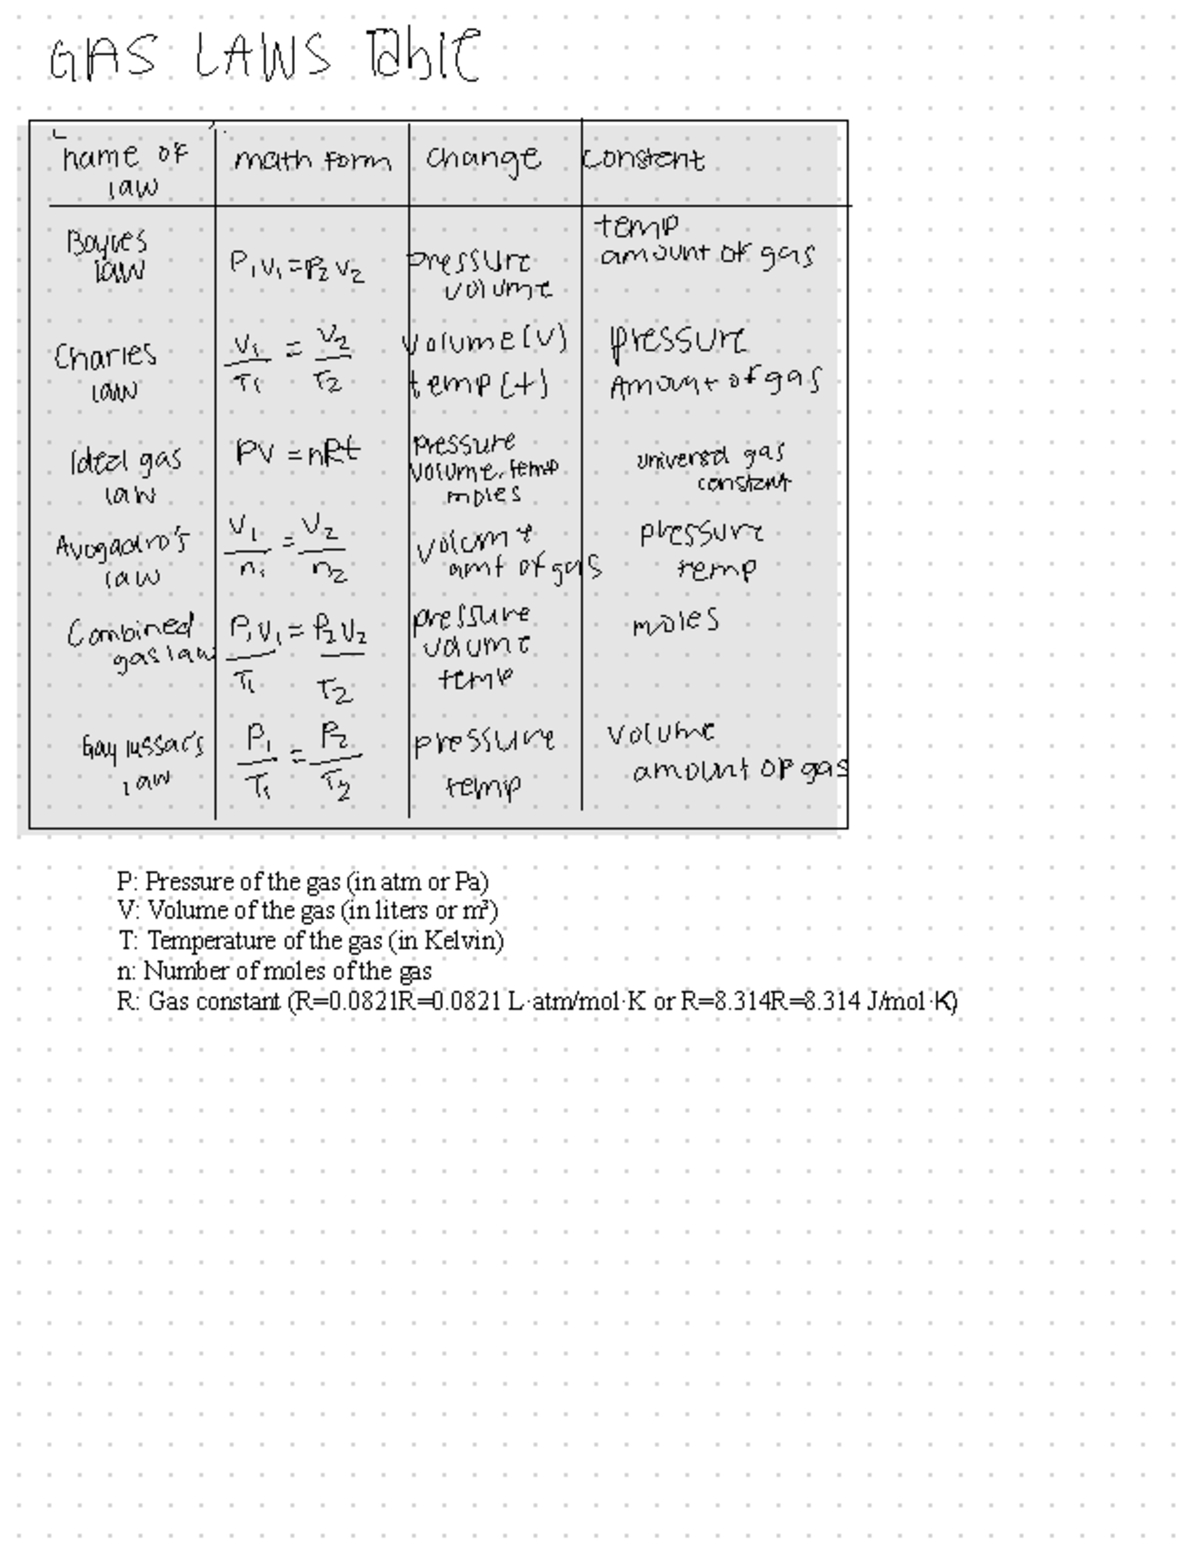 GAS LAWS Table
name of law | math form | change | constent
Boyles law | P₁V₁=P₂V₂ | pressure volume | temp amount of gas
Charles law | V₁/T₁ = V₂/T₂ | Volume(V) temp(t) | pressure Amount of gas
Ideal gas law | PV = nRt | pressure volume, temp moles | universal gas constant
Avogadro's law | V₁/n₁ = V₂/n₂ | volume amt of gas | pressure temp
Combined gas law | P₁V₁/T₁ = P₂V₂/T₂ | pressure volume temp | moles
Gay lussac's law | P₁/T₁ = P₂/T₂ | pressure temp | volume amount of gas
P: Pressure of the gas (in atm or Pa)
V: Volume of the gas (in liters or m³)
T: Temperature of the gas (in Kelvin)
n: Number of moles of the gas
R: Gas constant (R=0.0821R=0.0821 L·atm/mol·K or R=8.314R=8.314 J/mol·K)